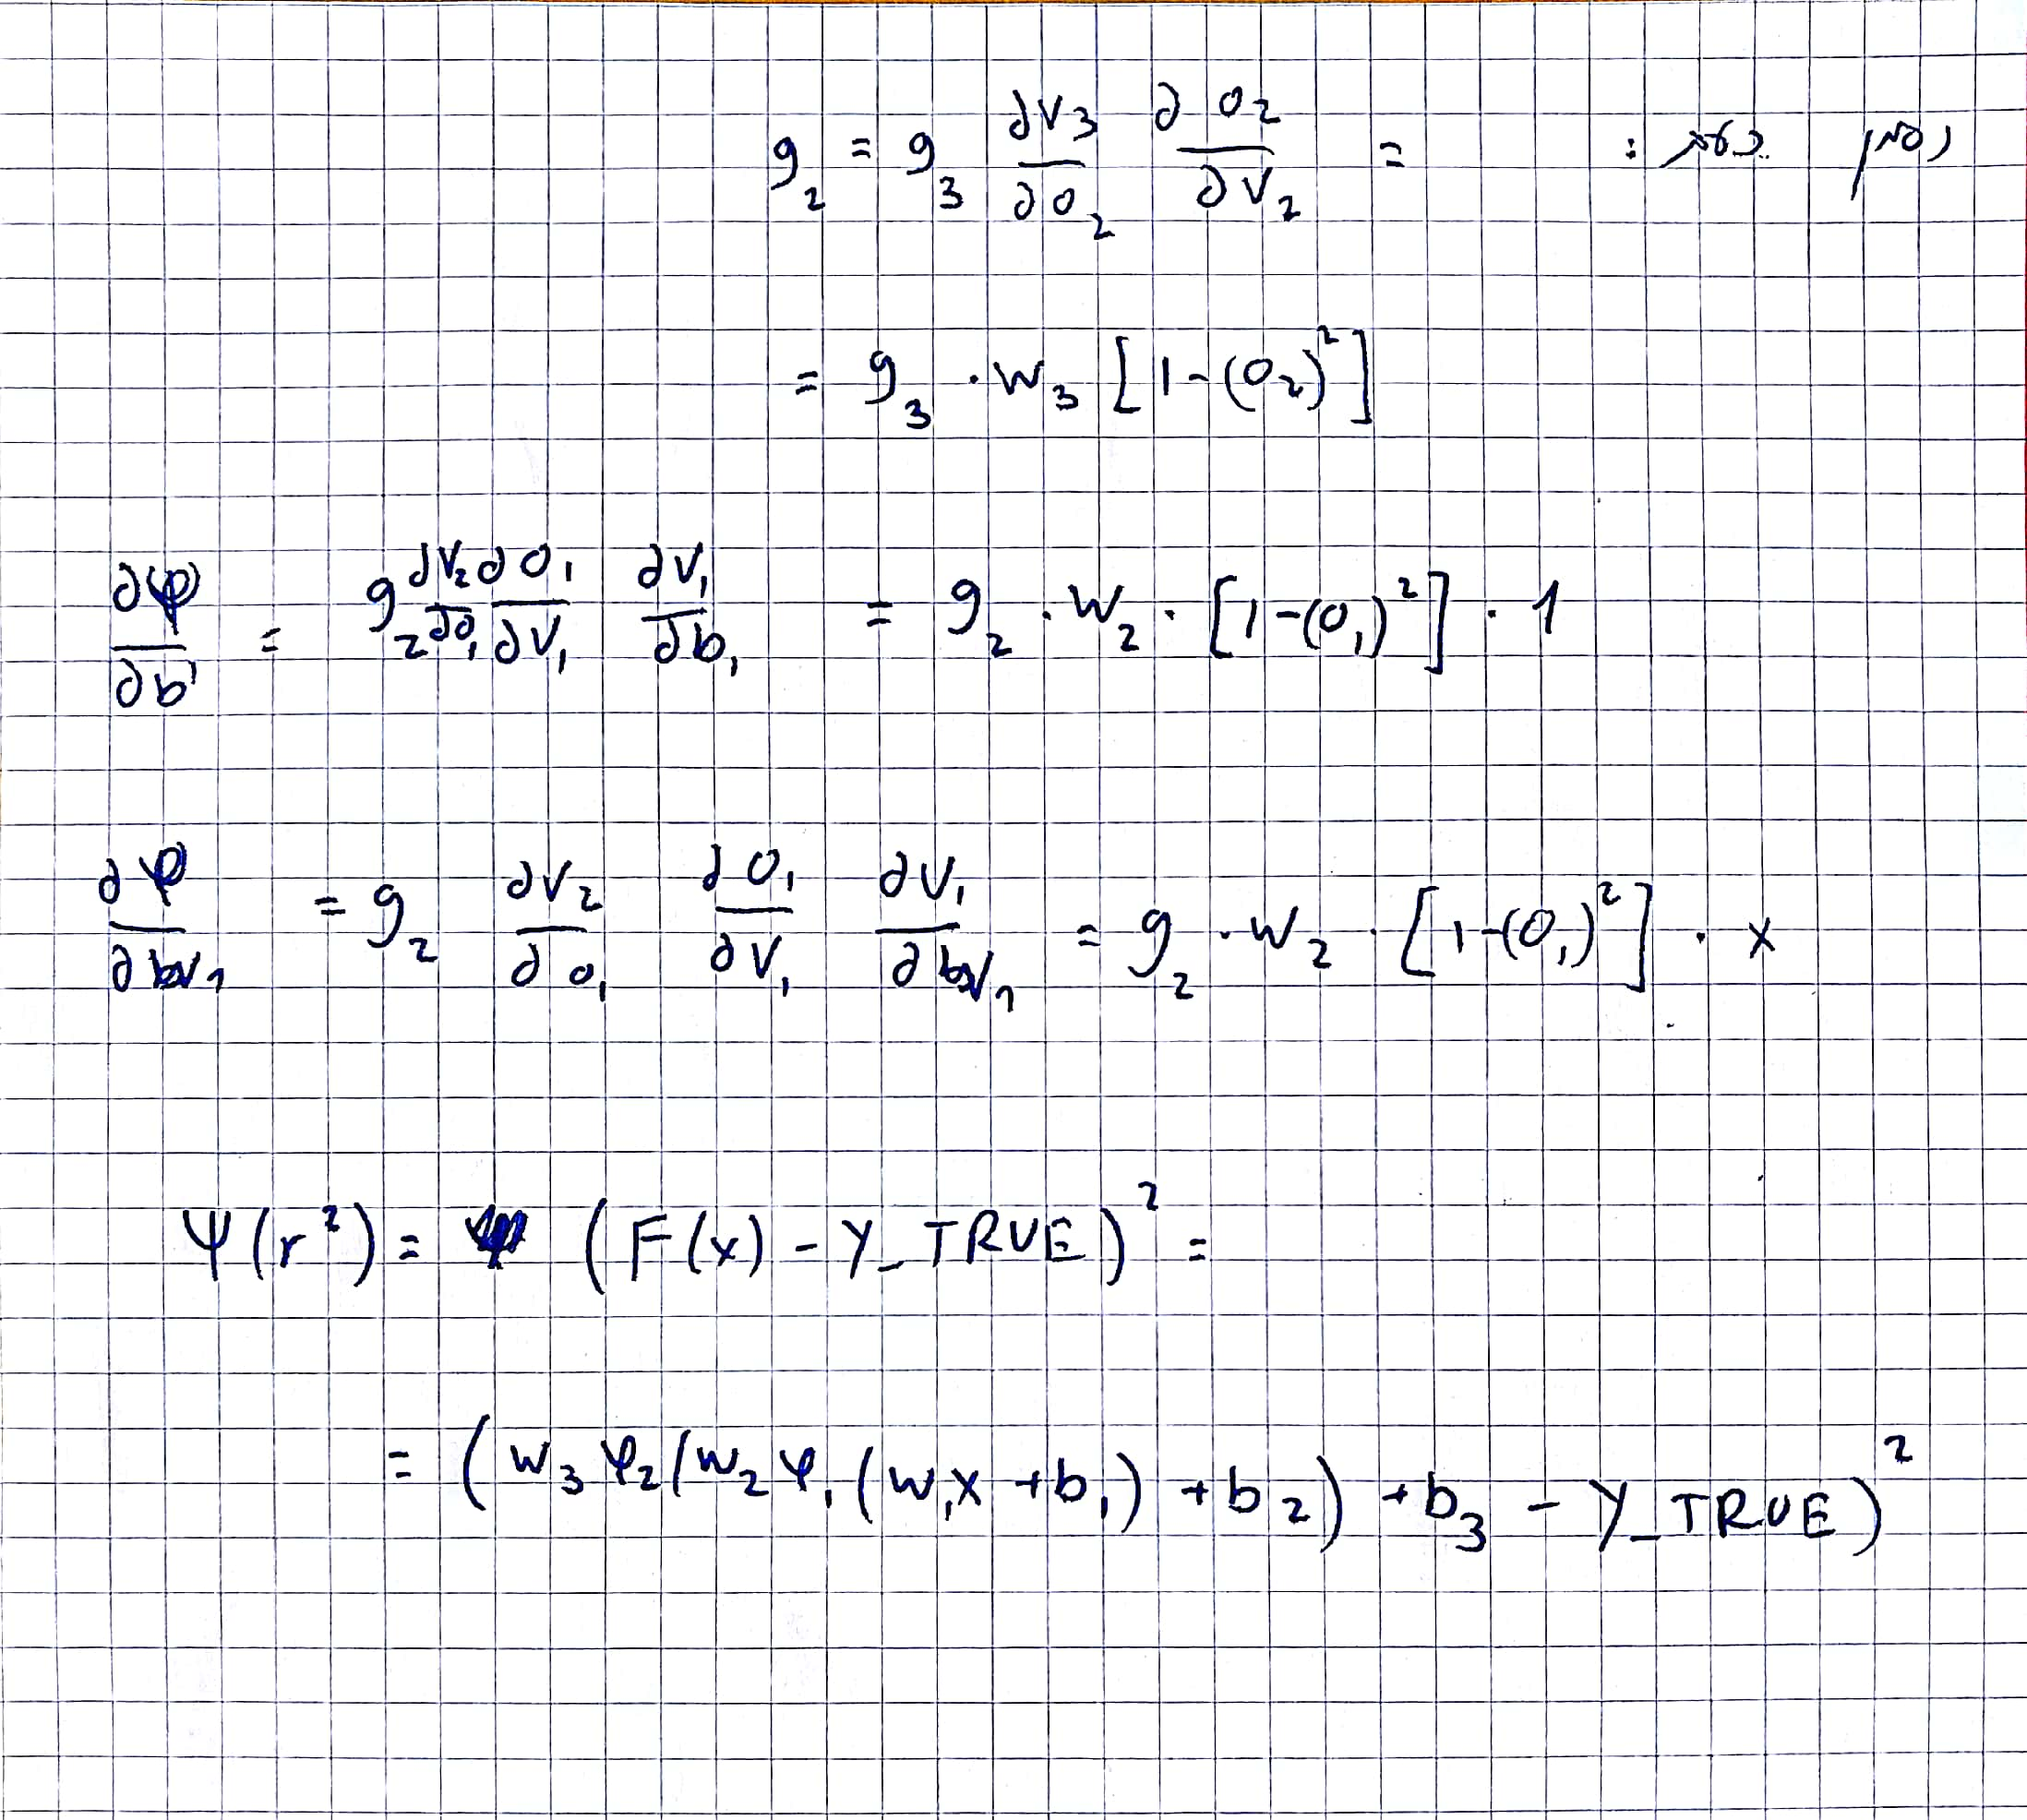 נסמן כעת : g₂ = g₃ ∂V₃/∂O₂ ∂O₂/∂V₂ =
= g₃ · W₃ [1-(O₂)²]
∂Ψ/∂b₁ = g₂ ∂V₂/∂O₁ ∂O₁/∂V₁ ∂V₁/∂b₁ = g₂ · W₂ · [1-(O₁)²] · 1
∂Ψ/∂W₁ = g₂ ∂V₂/∂O₁ ∂O₁/∂V₁ ∂V₁/∂W₁ = g₂ · W₂ · [1-(O₁)²] · x
Ψ(r²) = (F(x) - Y_TRUE)² =
= (W₃ φ₂(W₂ φ₁(W₁x + b₁) + b₂) + b₃ - Y_TRUE)²